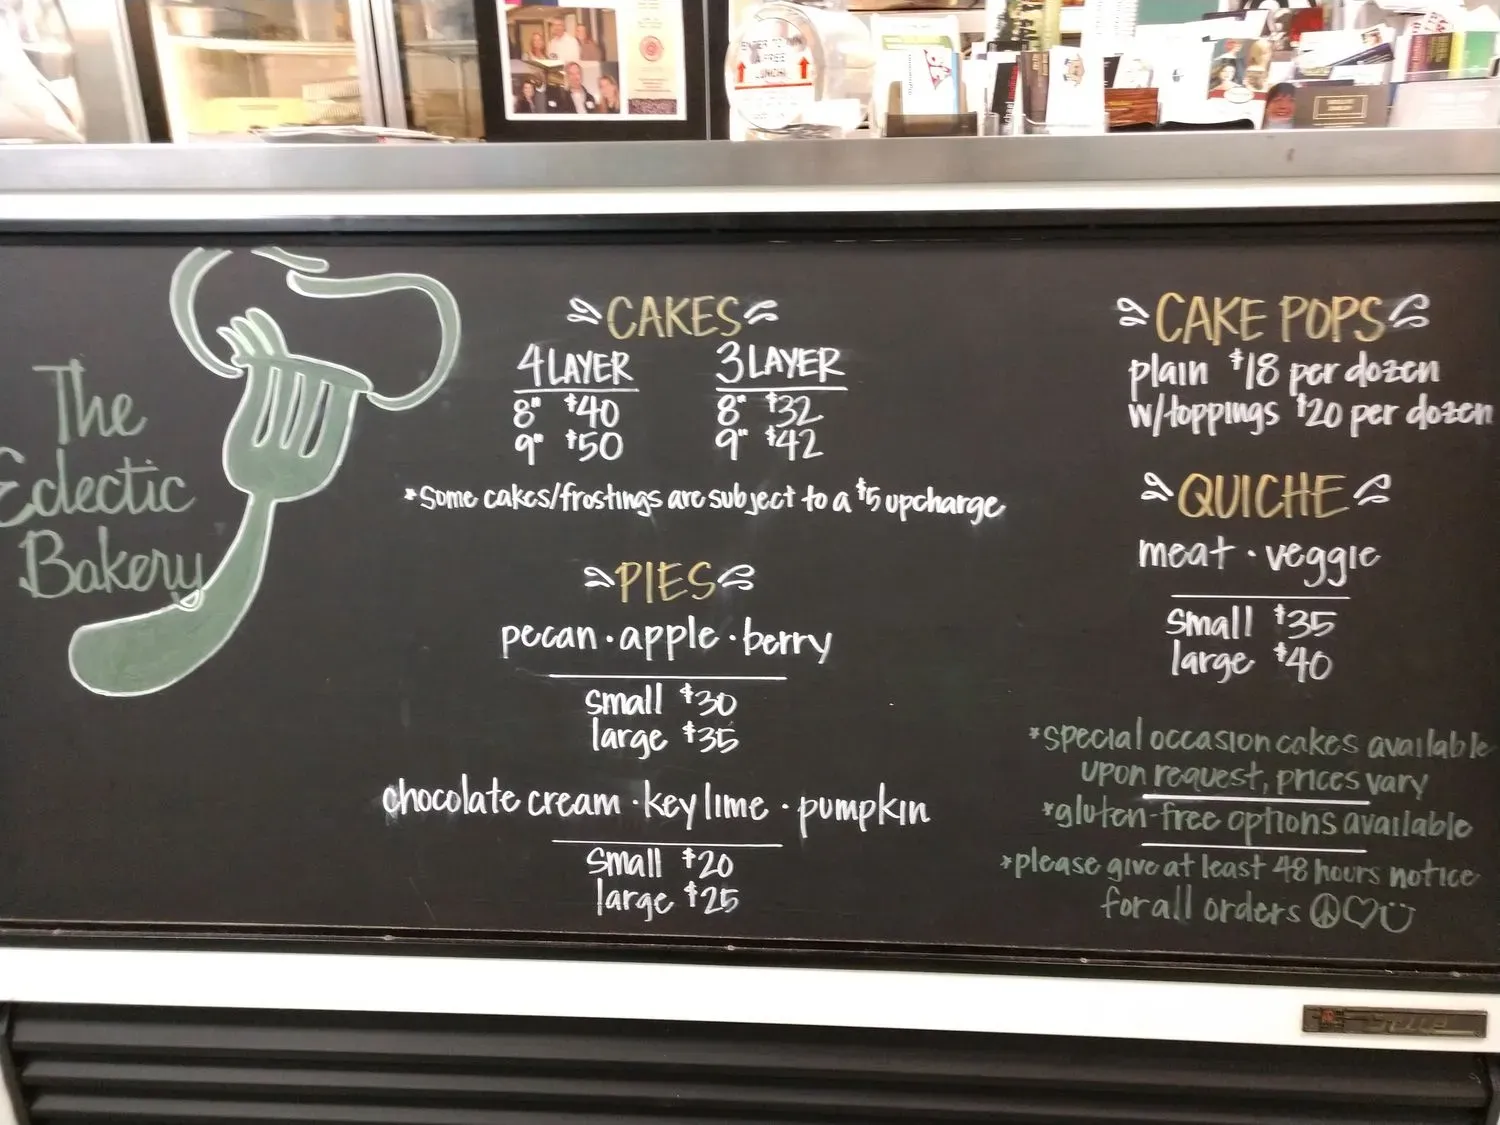 ENTER TO WIN
A FREE
LUNCH!
The
Eclectic
Bakery
CAKES
4 LAYER
8" $40
9" $50
3 LAYER
8" $32
9" $42
*Some cakes/frostings are subject to a $5 upcharge
PIES
pecan · apple · berry
small $30
large $35
chocolate cream · key lime · pumpkin
small $20
large $25
CAKE POPS
plain $18 per dozen
w/toppings $20 per dozen
QUICHE
meat · veggie
small $35
large $40
*special occasion cakes available
upon request, prices vary
*gluten-free options available
*please give at least 48 hours notice
for all orders